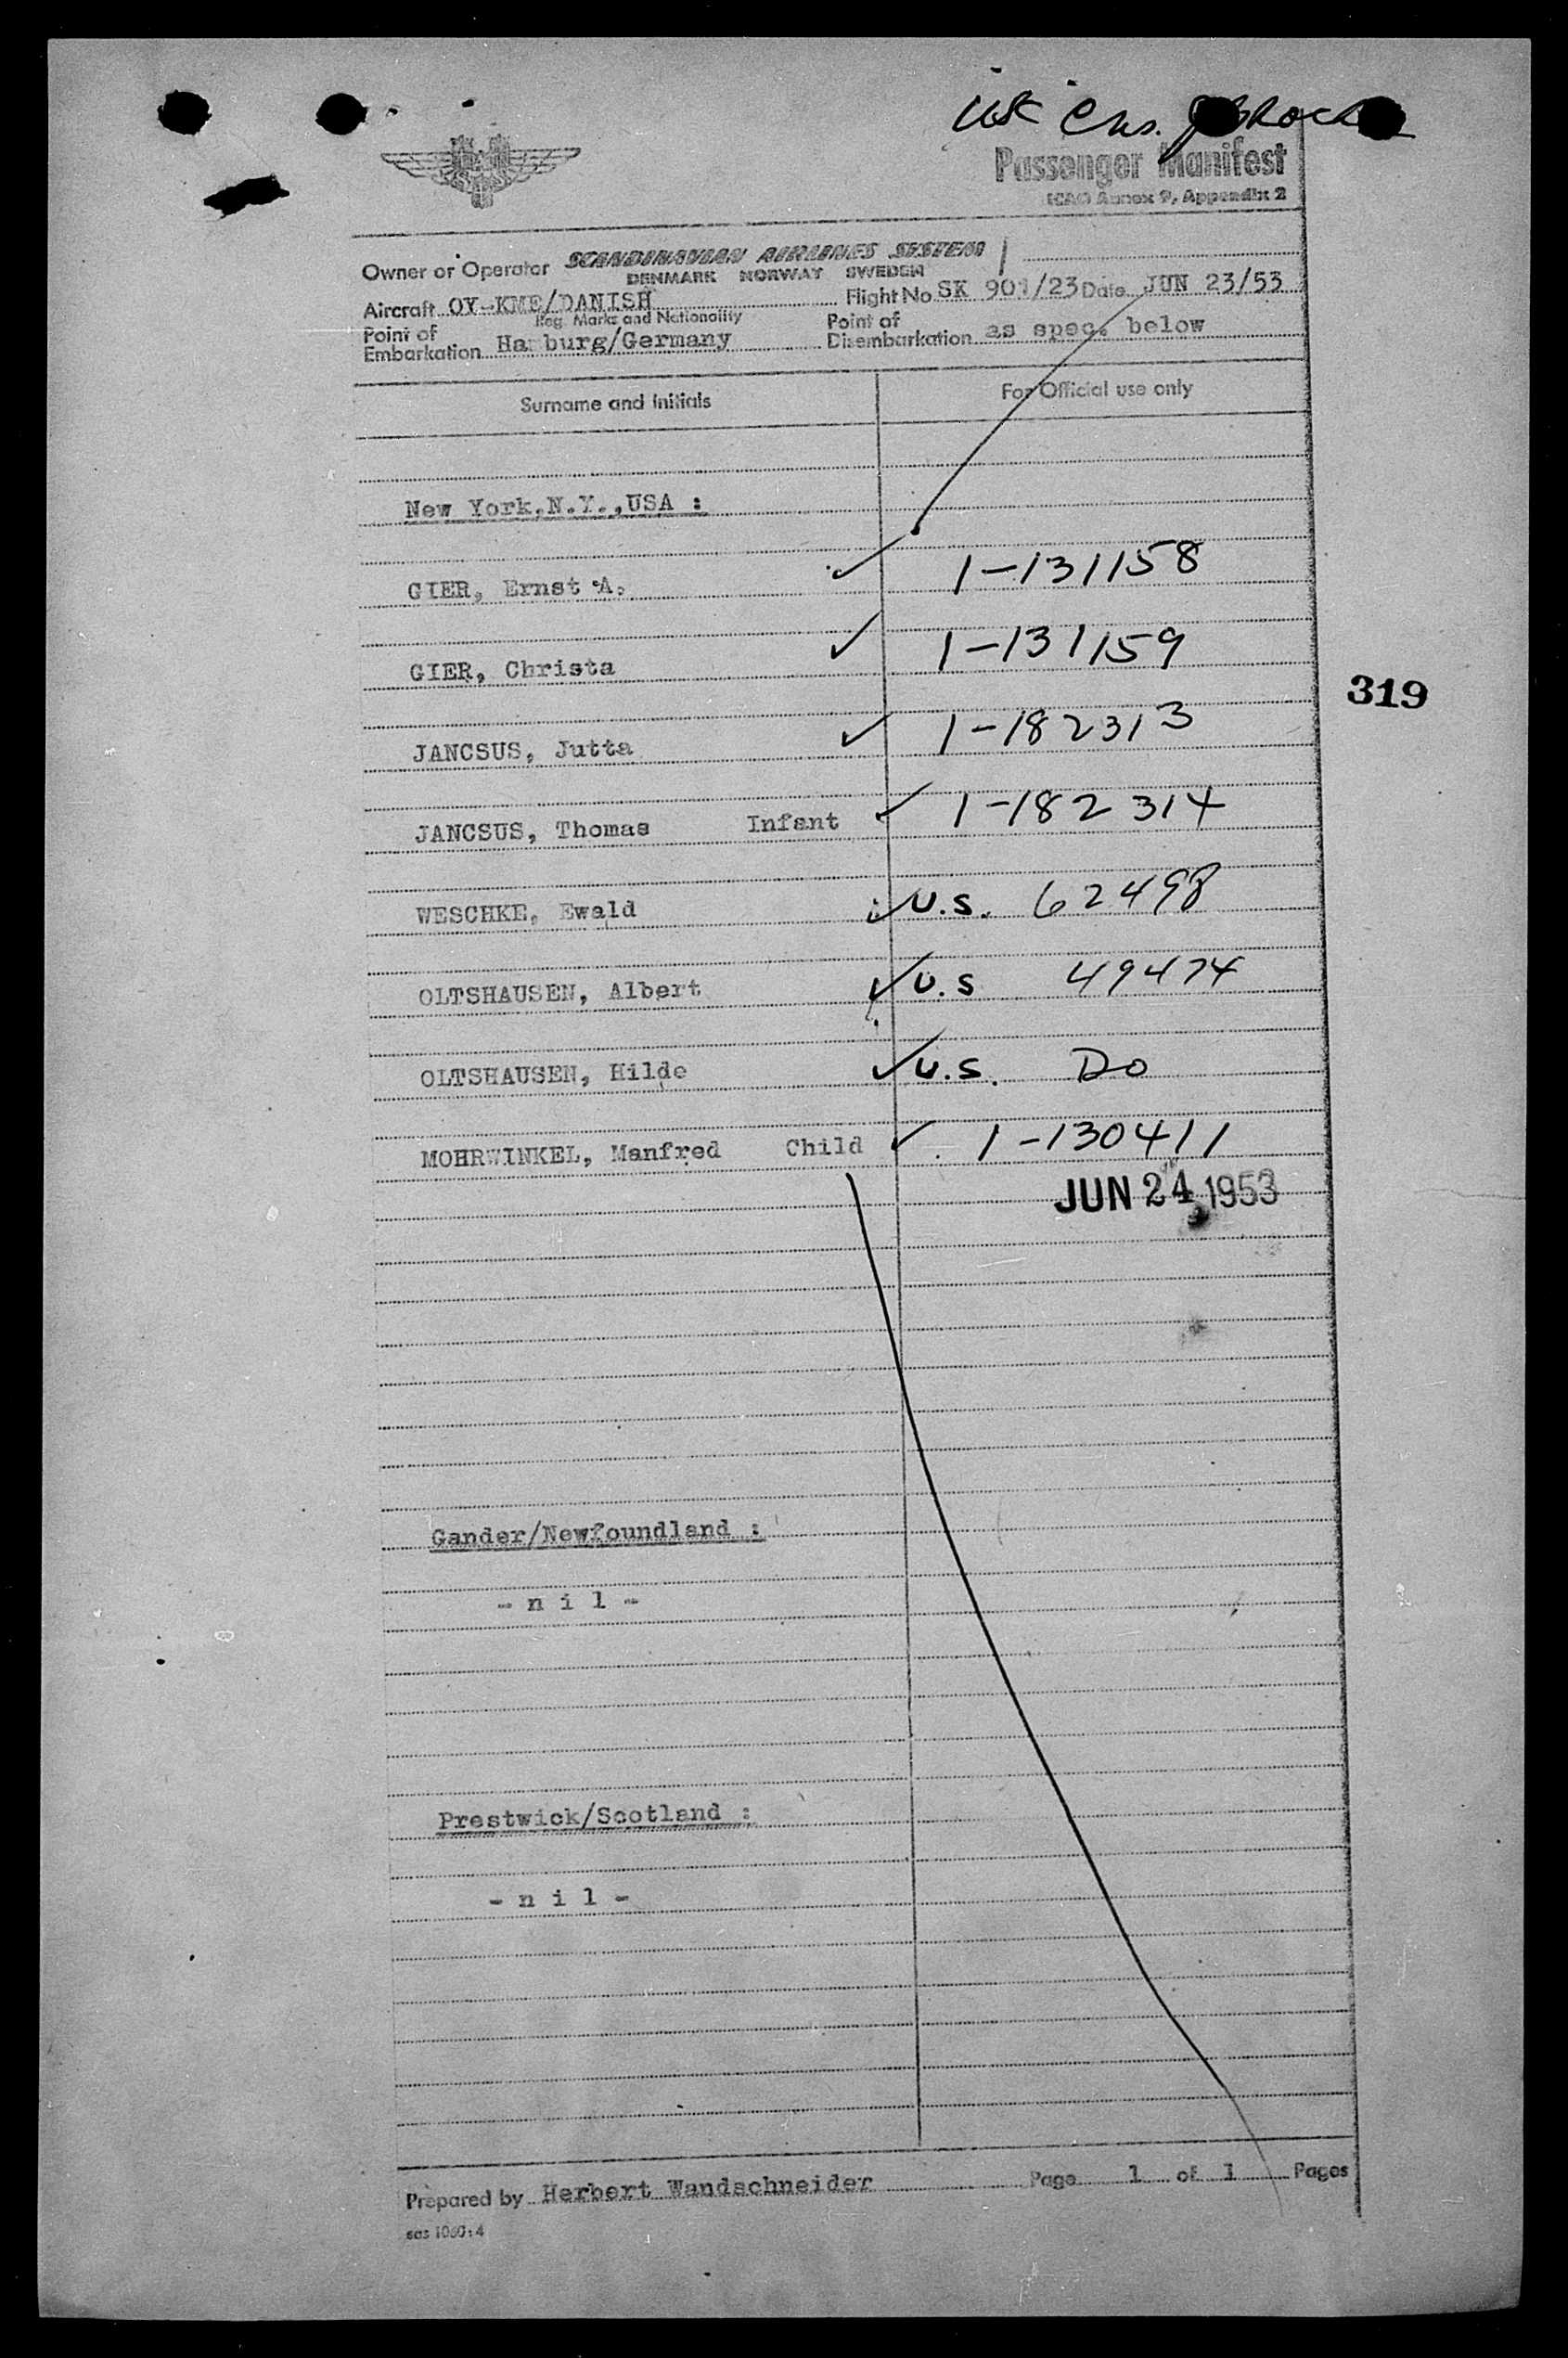 Passenger Manifest
ICAO Annex 9, Appendix 2
Owner or Operator SCANDINAVIAN AIRLINES SYSTEM
DENMARK NORWAY SWEDEN
Aircraft OY-KME/DANISH Flight No SK 901/23 Date JUN 23/53
Reg. Marks and Nationality
Point of Embarkation Hamburg/Germany Point of Disembarkation as spec. below
Surname and Initials For Official use only
New York,N.Y.,USA :
GIER, Ernst A. 1-131158
GIER, Christa 1-131159
319
JANCSUS, Jutta 1-182313
JANCSUS, Thomas Infant 1-182314
WESCHKE, Ewald U.S. 62498
OLTSHAUSEN, Albert U.S 49474
OLTSHAUSEN, Hilde U.S. Do
MOHRWINKEL, Manfred Child 1-130411
JUN 24 1953
Gander/Newfoundland :
- n i l -
Prestwick/Scotland :
- n i l -
Prepared by Herbert Wandschneider Page 1 of 1 Pages